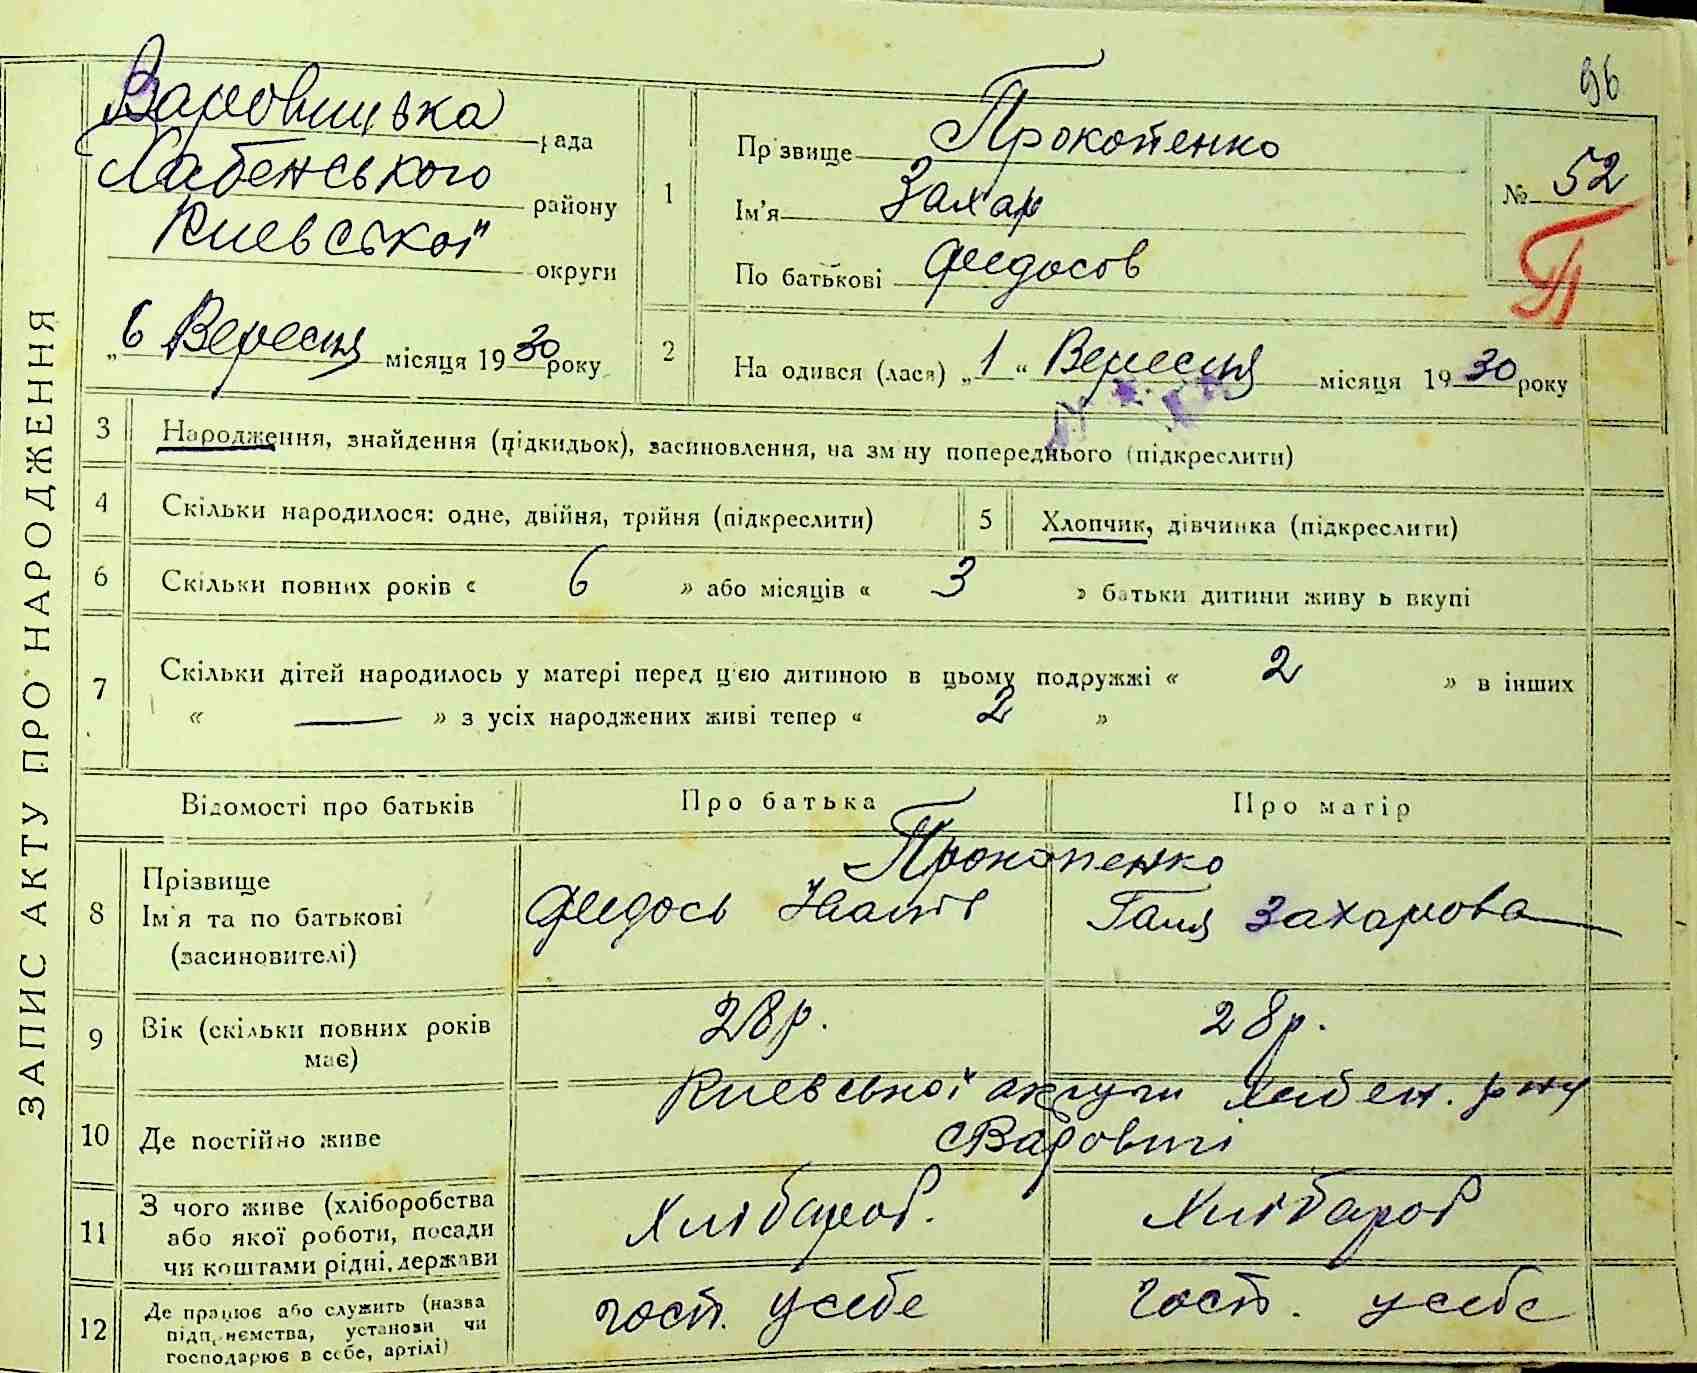 96
ЗАПИС АКТУ ПРО НАРОДЖЕННЯ
Варовицька рада
Хабенського району
Киевської округи
„6 Вересня місяця 1930 року
1
Прізвище Прокопенко
Ім'я Захар
По батькові Федосов
№ 52
П
2
Народився (лася) „1“ Вересня місяця 1930 року
3 Народження, знайдення (підкидьок), засиновлення, на зміну попереднього (підкреслити)
4 Скільки народилося: одне, двійня, трійня (підкреслити)
5 Хлопчик, дівчинка (підкреслити)
6 Скільки повних років « 6 » або місяців « 3 » батьки дитини живуть вкупі
7 Скільки дітей народилось у матері перед цією дитиною в цьому подружжі « 2 » в інших
« — » з усіх народжених живі тепер « 2 »
Відомості про батьків Про батька Про матір
8 Прізвище Прокопенко
Ім'я та по батькові Федось Галя Захарова
(засиновителі)
9 Вік (скільки повних років має) 28р. 28р.
Киевської округи Хабен. р-ну
10 Де постійно живе с Варовичі
11 З чого живе (хліборобства
або якої роботи, посади Хлібароб. Хлібароб
чи коштами рідні, держави
12 Де працює або служить (назва
підприємства, установи чи госп. усебе госп. усебе
господарює в себе, артілі)